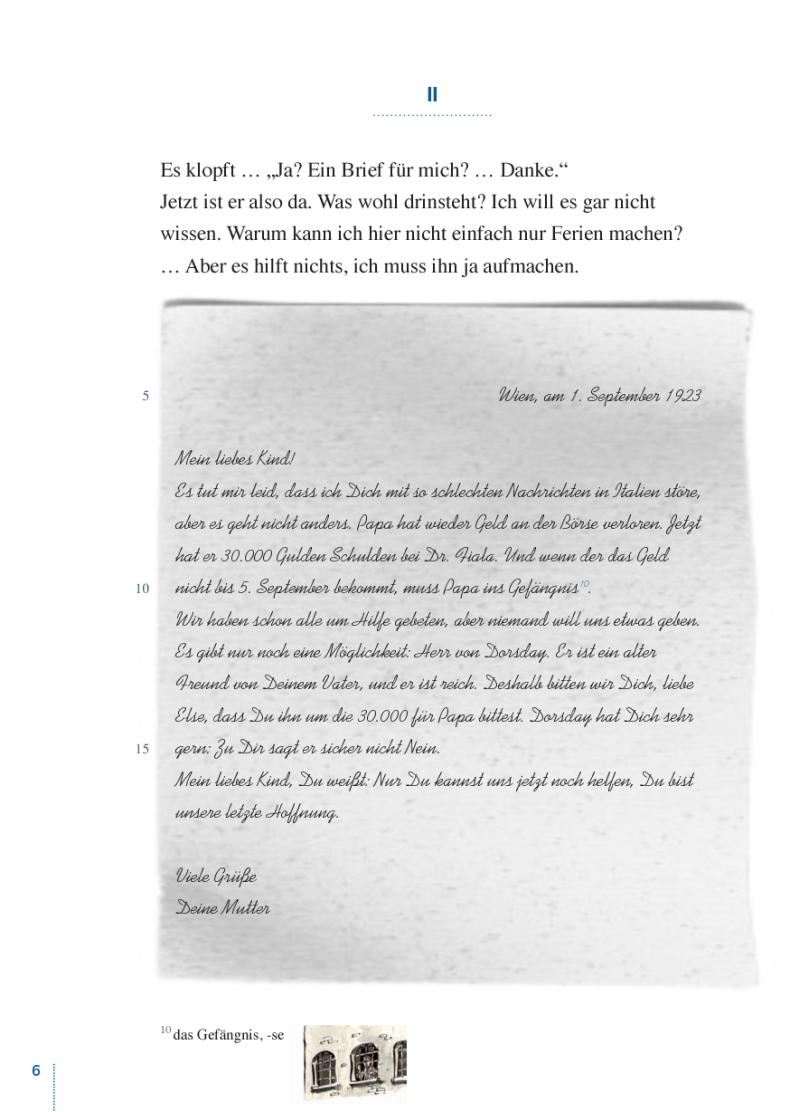 II
Es klopft … „Ja? Ein Brief für mich? … Danke.“
Jetzt ist er also da. Was wohl drinsteht? Ich will es gar nicht
wissen. Warum kann ich hier nicht einfach nur Ferien machen?
… Aber es hilft nichts, ich muss ihn ja aufmachen.
5 Wien, am 1. September 1923
Mein liebes Kind!
Es tut mir leid, dass ich Dich mit so schlechten Nachrichten in Italien störe,
aber es geht nicht anders. Papa hat wieder Geld an der Börse verloren. Jetzt
hat er 30.000 Gulden Schulden bei Dr. Fiala. Und wenn der das Geld
10 nicht bis 5. September bekommt, muss Papa ins Gefängnis10.
Wir haben schon alle um Hilfe gebeten, aber niemand will uns etwas geben.
Es gibt nur noch eine Möglichkeit: Herr von Dorsday. Er ist ein alter
Freund von Deinem Vater, und er ist reich. Deshalb bitten wir Dich, liebe
Else, dass Du ihn um die 30.000 für Papa bittest. Dorsday hat Dich sehr
15 gern: Zu Dir sagt er sicher nicht Nein.
Mein liebes Kind, Du weißt: Nur Du kannst uns jetzt noch helfen, Du bist
unsere letzte Hoffnung.
Viele Grüße
Deine Mutter
10 das Gefängnis, -se
6